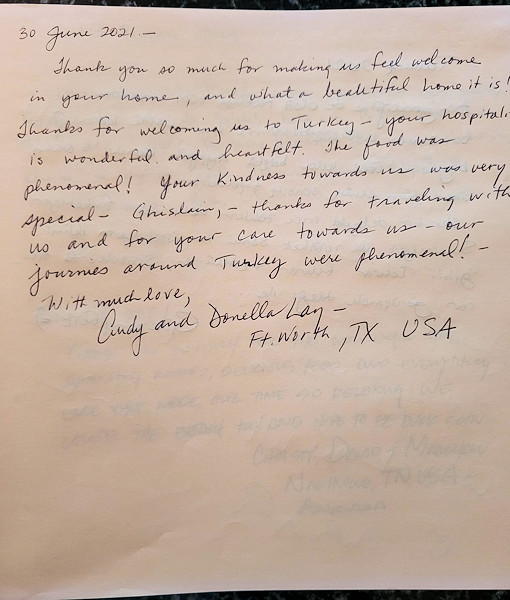 30 June 2021.-
Thank you so much for making us feel welcome
in your home, and what a beautiful home it is!
Thanks for welcoming us to Turkey - your hospitali
is wonderful and heartfelt. The food was
phenomenal! Your kindness towards us was very
special - Ghislain, - thanks for traveling with
us and for your care towards us - our
journies around Turkey were phenomenal! -
With much love,
Cindy and Donella Lay -
Ft. Worth, TX USA